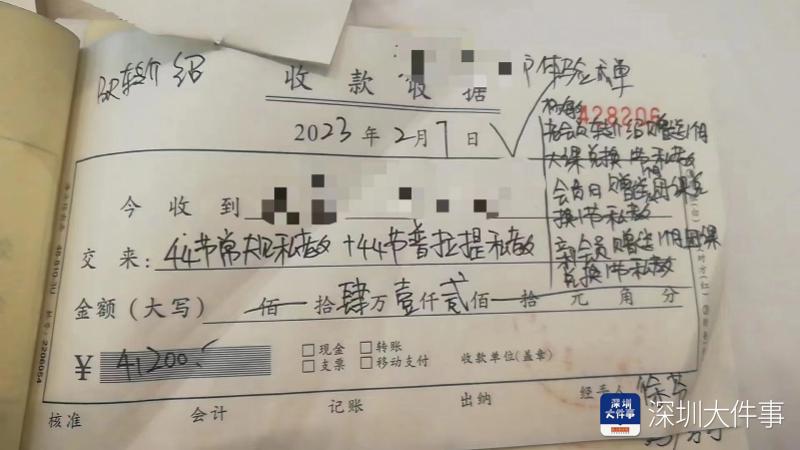 转介绍
收款收据
体验
428206
2023年2月7日
老会员转介绍赠送1个月
大课兑换1节私教
会员日赠送1个月团课兑
换1节私教
会员赠送1个月团课
兑换1节私教
今收到
交来：44节常规私教+44节普拉提私教
金额（大写） 佰 拾肆万壹仟贰佰 拾 元 角 分
¥ 41200.
□现金 □转账
□支票 □移动支付 收款单位(盖章)
核准 会计 记账 出纳 经手人
深圳大件事
深圳大件事